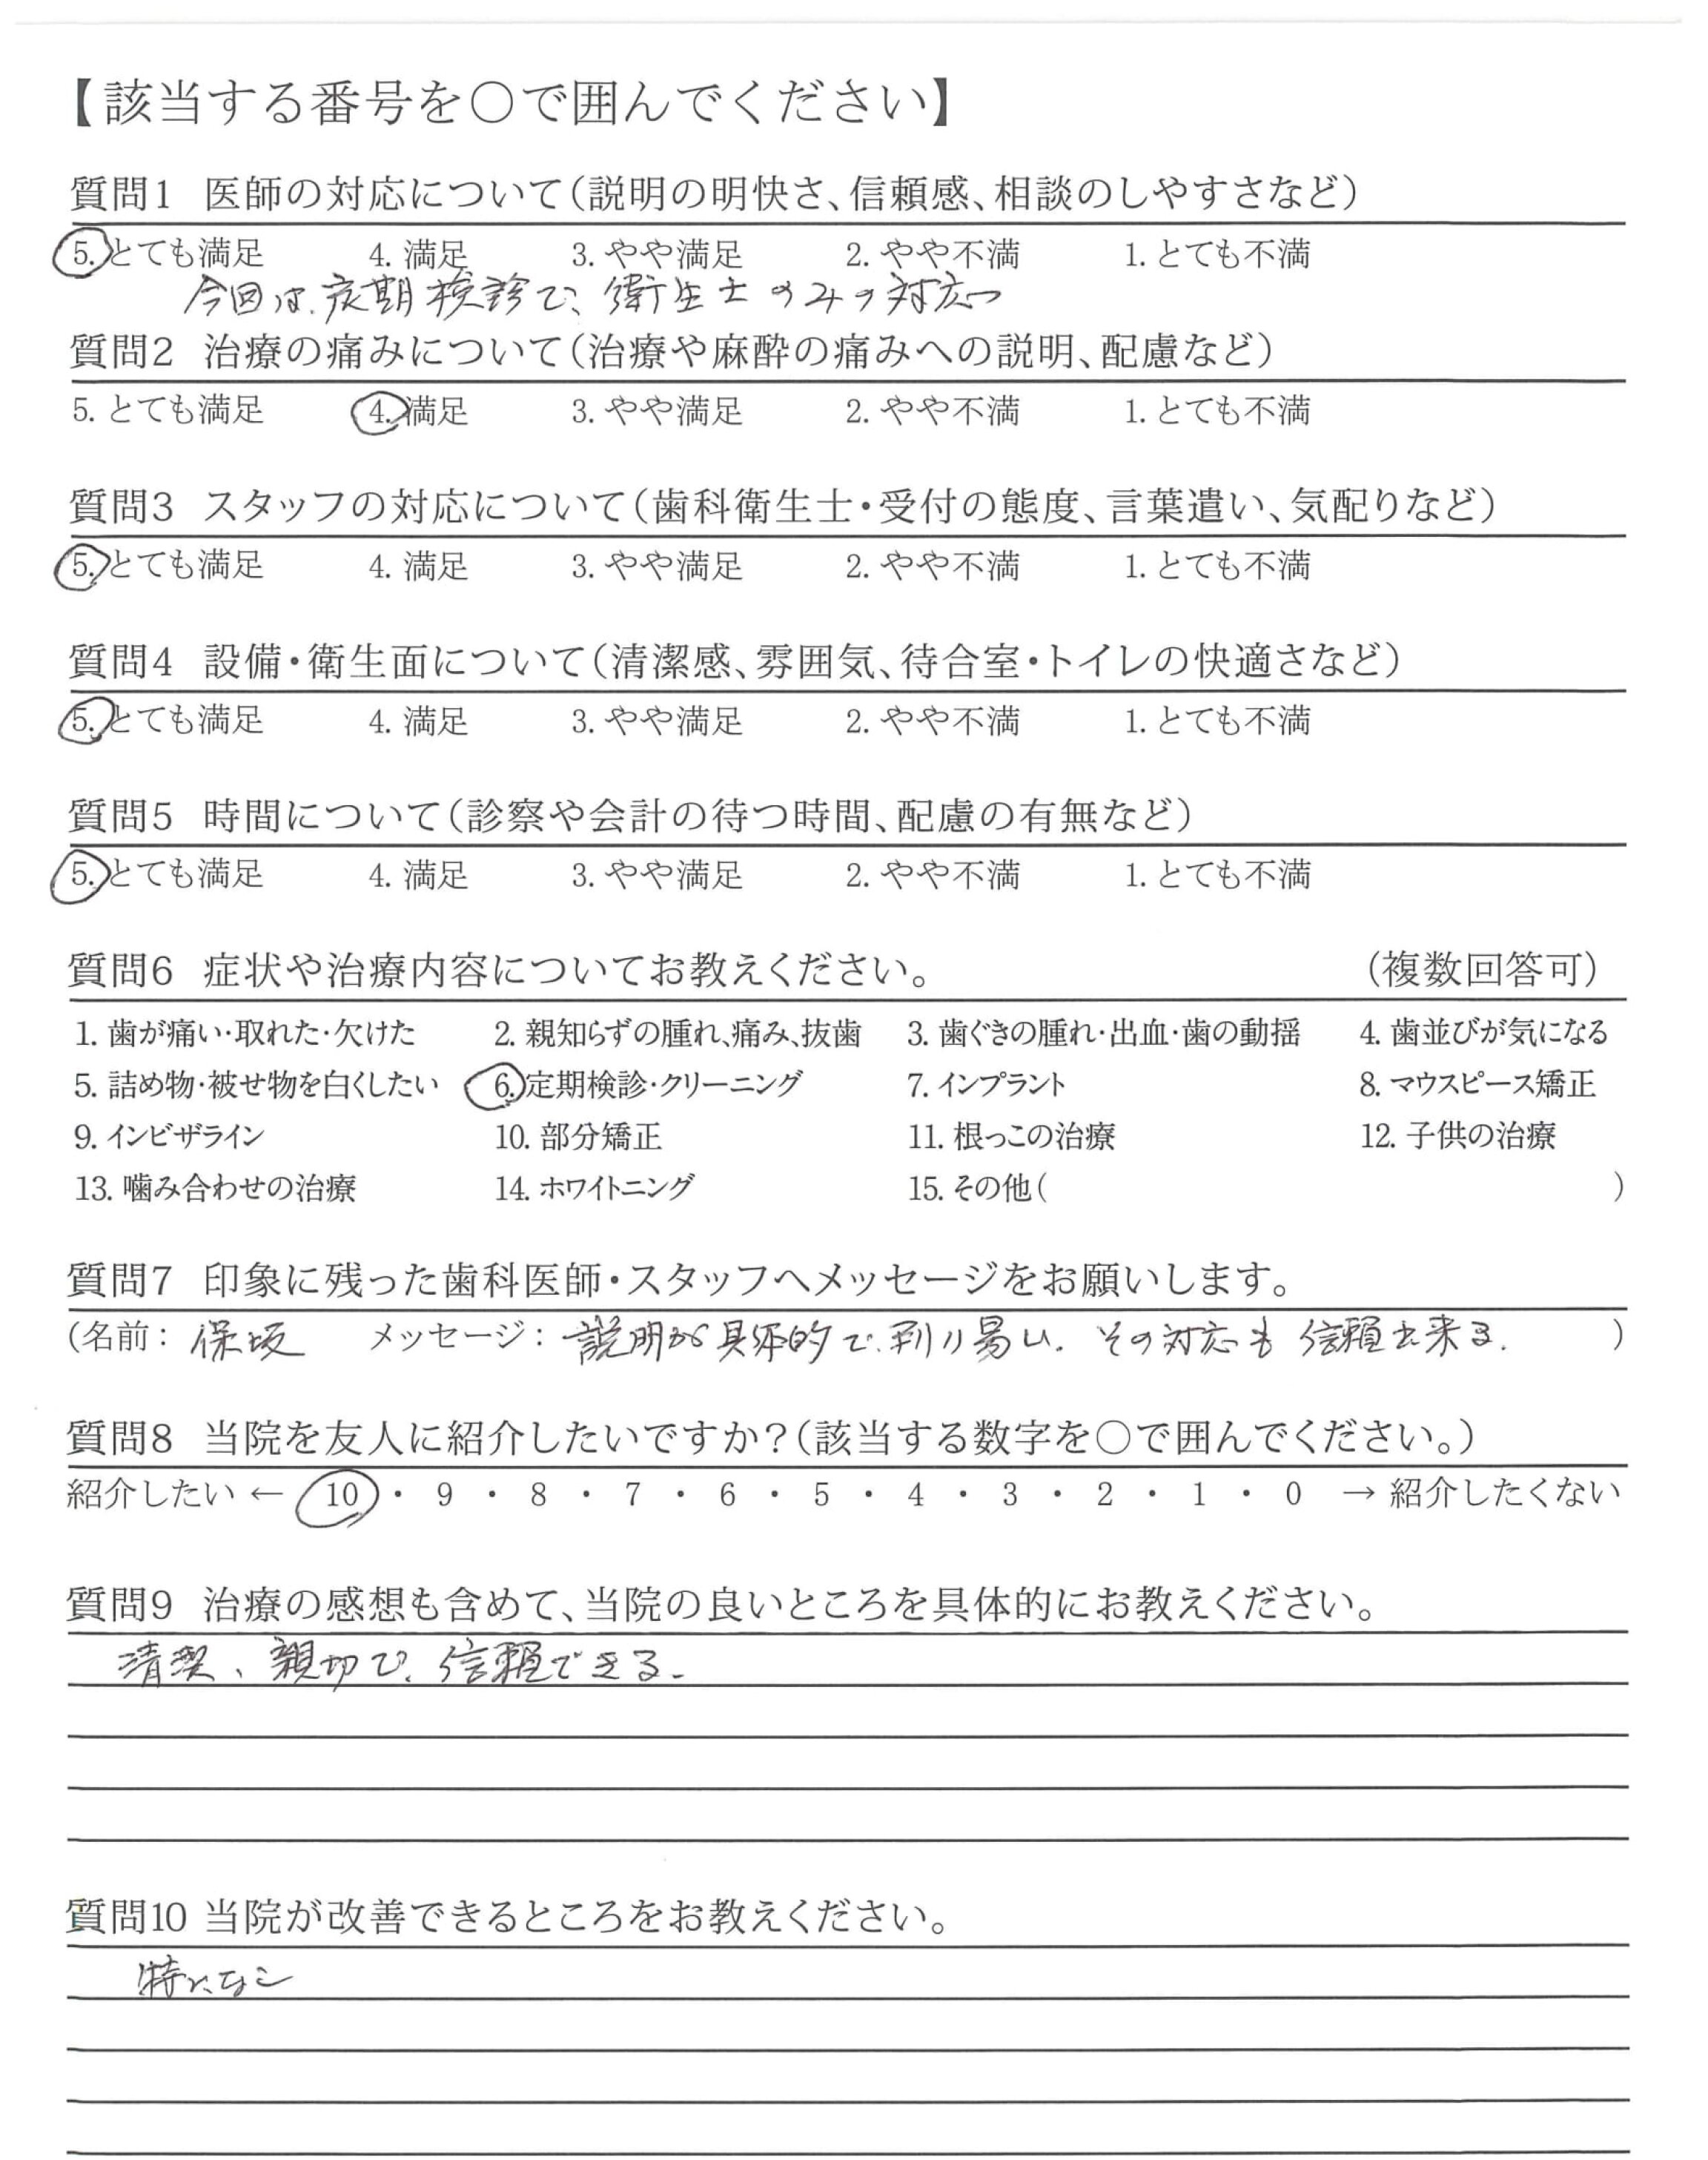 【該当する番号を○で囲んでください】
質問1 医師の対応について(説明の明快さ、信頼感、相談のしやすさなど)
5. とても満足 4. 満足 3. やや満足 2. やや不満 1. とても不満
今回は、定期検診で、衛生士のみの対応
質問2 治療の痛みについて(治療や麻酔の痛みへの説明、配慮など)
5. とても満足 4. 満足 3. やや満足 2. やや不満 1. とても不満
質問3 スタッフの対応について(歯科衛生士・受付の態度、言葉遣い、気配りなど)
5. とても満足 4. 満足 3. やや満足 2. やや不満 1. とても不満
質問4 設備・衛生面について(清潔感、雰囲気、待合室・トイレの快適さなど)
5. とても満足 4. 満足 3. やや満足 2. やや不満 1. とても不満
質問5 時間について(診察や会計の待つ時間、配慮の有無など)
5. とても満足 4. 満足 3. やや満足 2. やや不満 1. とても不満
質問6 症状や治療内容についてお教えください。 (複数回答可)
1. 歯が痛い・取れた・欠けた 2. 親知らずの腫れ、痛み、抜歯 3. 歯ぐきの腫れ・出血・歯の動揺 4. 歯並びが気になる
5. 詰め物・被せ物を白くしたい 6. 定期検診・クリーニング 7. インプラント 8. マウスピース矯正
9. インビザライン 10. 部分矯正 11. 根っこの治療 12. 子供の治療
13. 噛み合わせの治療 14. ホワイトニング 15. その他( )
質問7 印象に残った歯科医師・スタッフへメッセージをお願いします。
(名前: 保坂 メッセージ: 説明が具体的で、判り易い。その対応も信頼出来る。 )
質問8 当院を友人に紹介したいですか?(該当する数字を○で囲んでください。)
紹介したい ← 10 ・ 9 ・ 8 ・ 7 ・ 6 ・ 5 ・ 4 ・ 3 ・ 2 ・ 1 ・ 0 → 紹介したくない
質問9 治療の感想も含めて、当院の良いところを具体的にお教えください。
清潔、親切で、信頼できる。
質問10 当院が改善できるところをお教えください。
特になし